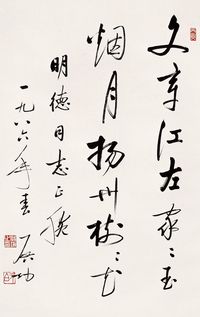 文章江左家〻玉
烟月扬州树〻花
明德同志正腕
一九八六年春 启功